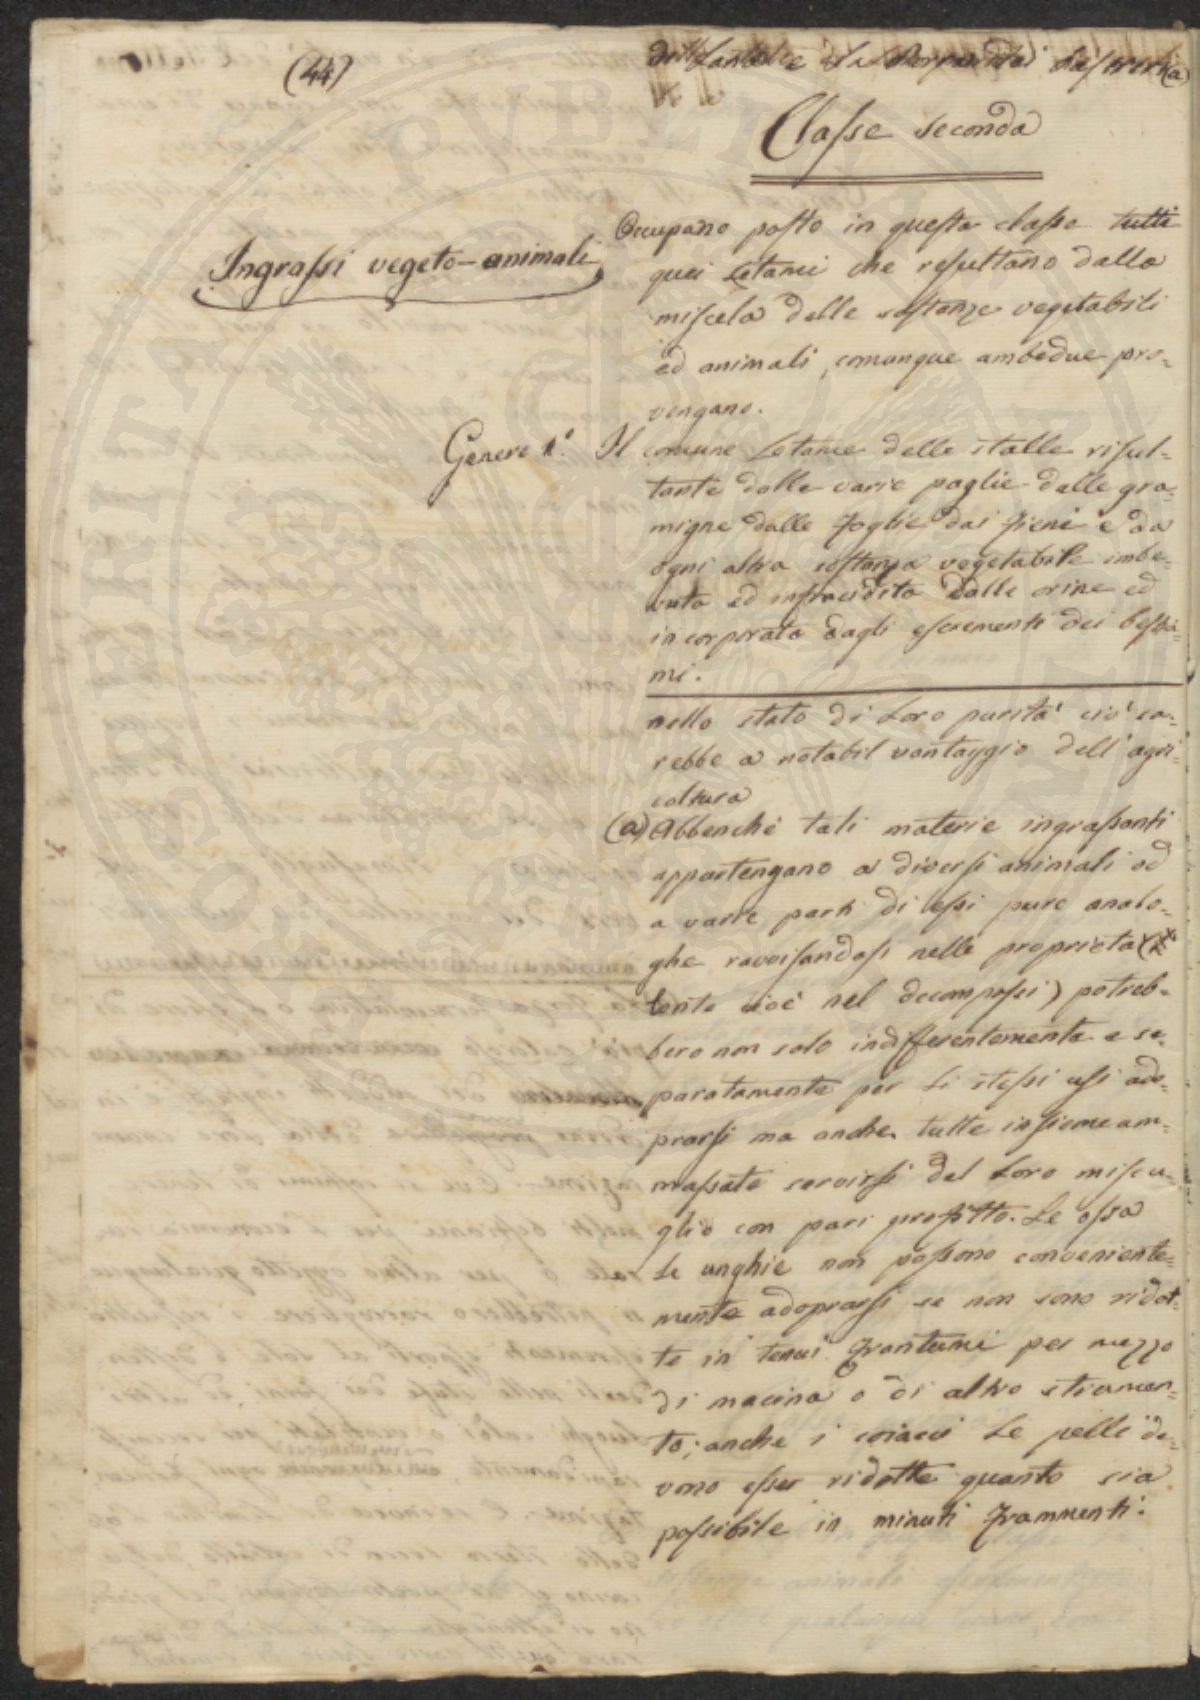 (44)
Classe seconda
Ingrassi vegeto-animali
Occupano posto in questa classe tutti
quei Letami che resultano dalla
miscela delle sostanze vegetabili
ed animali, comunque ambedue pro=
vengano.
Genere 1.º Il comune Letame delle stalle risul=
tante dalle varie paglie dalle gra=
migne dalle foglie dai fieni e da
ogni altra sostanza vegetabile imbe=
vuta ed infracidita dalle orine ed
incorporata dagli escrementi dei bestia=
mi.
nello stato di Loro purità ciò sa=
rebbe a notabil vantaggio dell' agri=
coltura
(a) Abbenchè tali materie ingrassanti
appartengano a diversi animali od
a varie parti di essi pure analo=
ghe ravvisandosi nelle proprietà
lente cioè nel decomporsi) potreb=
bero non solo indifferentemente e se=
paratamente per li stessi usi ado=
prarsi ma anche tutte insieme am=
massate servirsi del Loro miscu=
glio con pari profitto. Le ossa
Le unghie non possono conveniente=
mente adoprarsi se non sono ridot=
te in tenui frantumi per mezzo
di macina o di altro strumen=
to; anche i coiacci Le pelli de=
vono esser ridotte quanto sia
possibile in minuti frammenti.